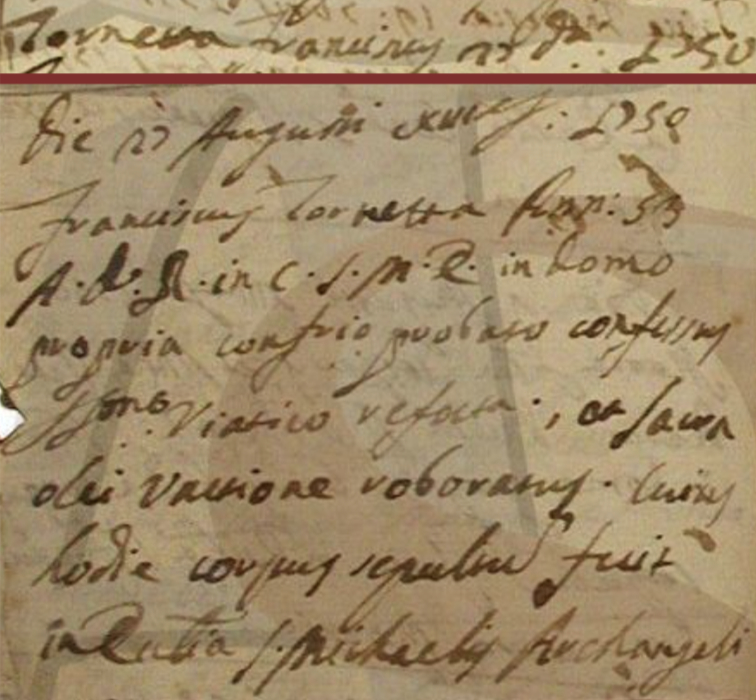 Tornetta Franciscus 27 d.ta 1750
Die 27 Augusti 1750
Franciscus Tornetta Ann: 53
A. d. R. in C. S. M. E. in domo
propria confrio probato confessus
SSmo Viatico refectu:, et Sacra
olei Unctione roboratus. Cuius
hodie corpus sepultu fuit
in Ecclia S. Michaelis Archangeli